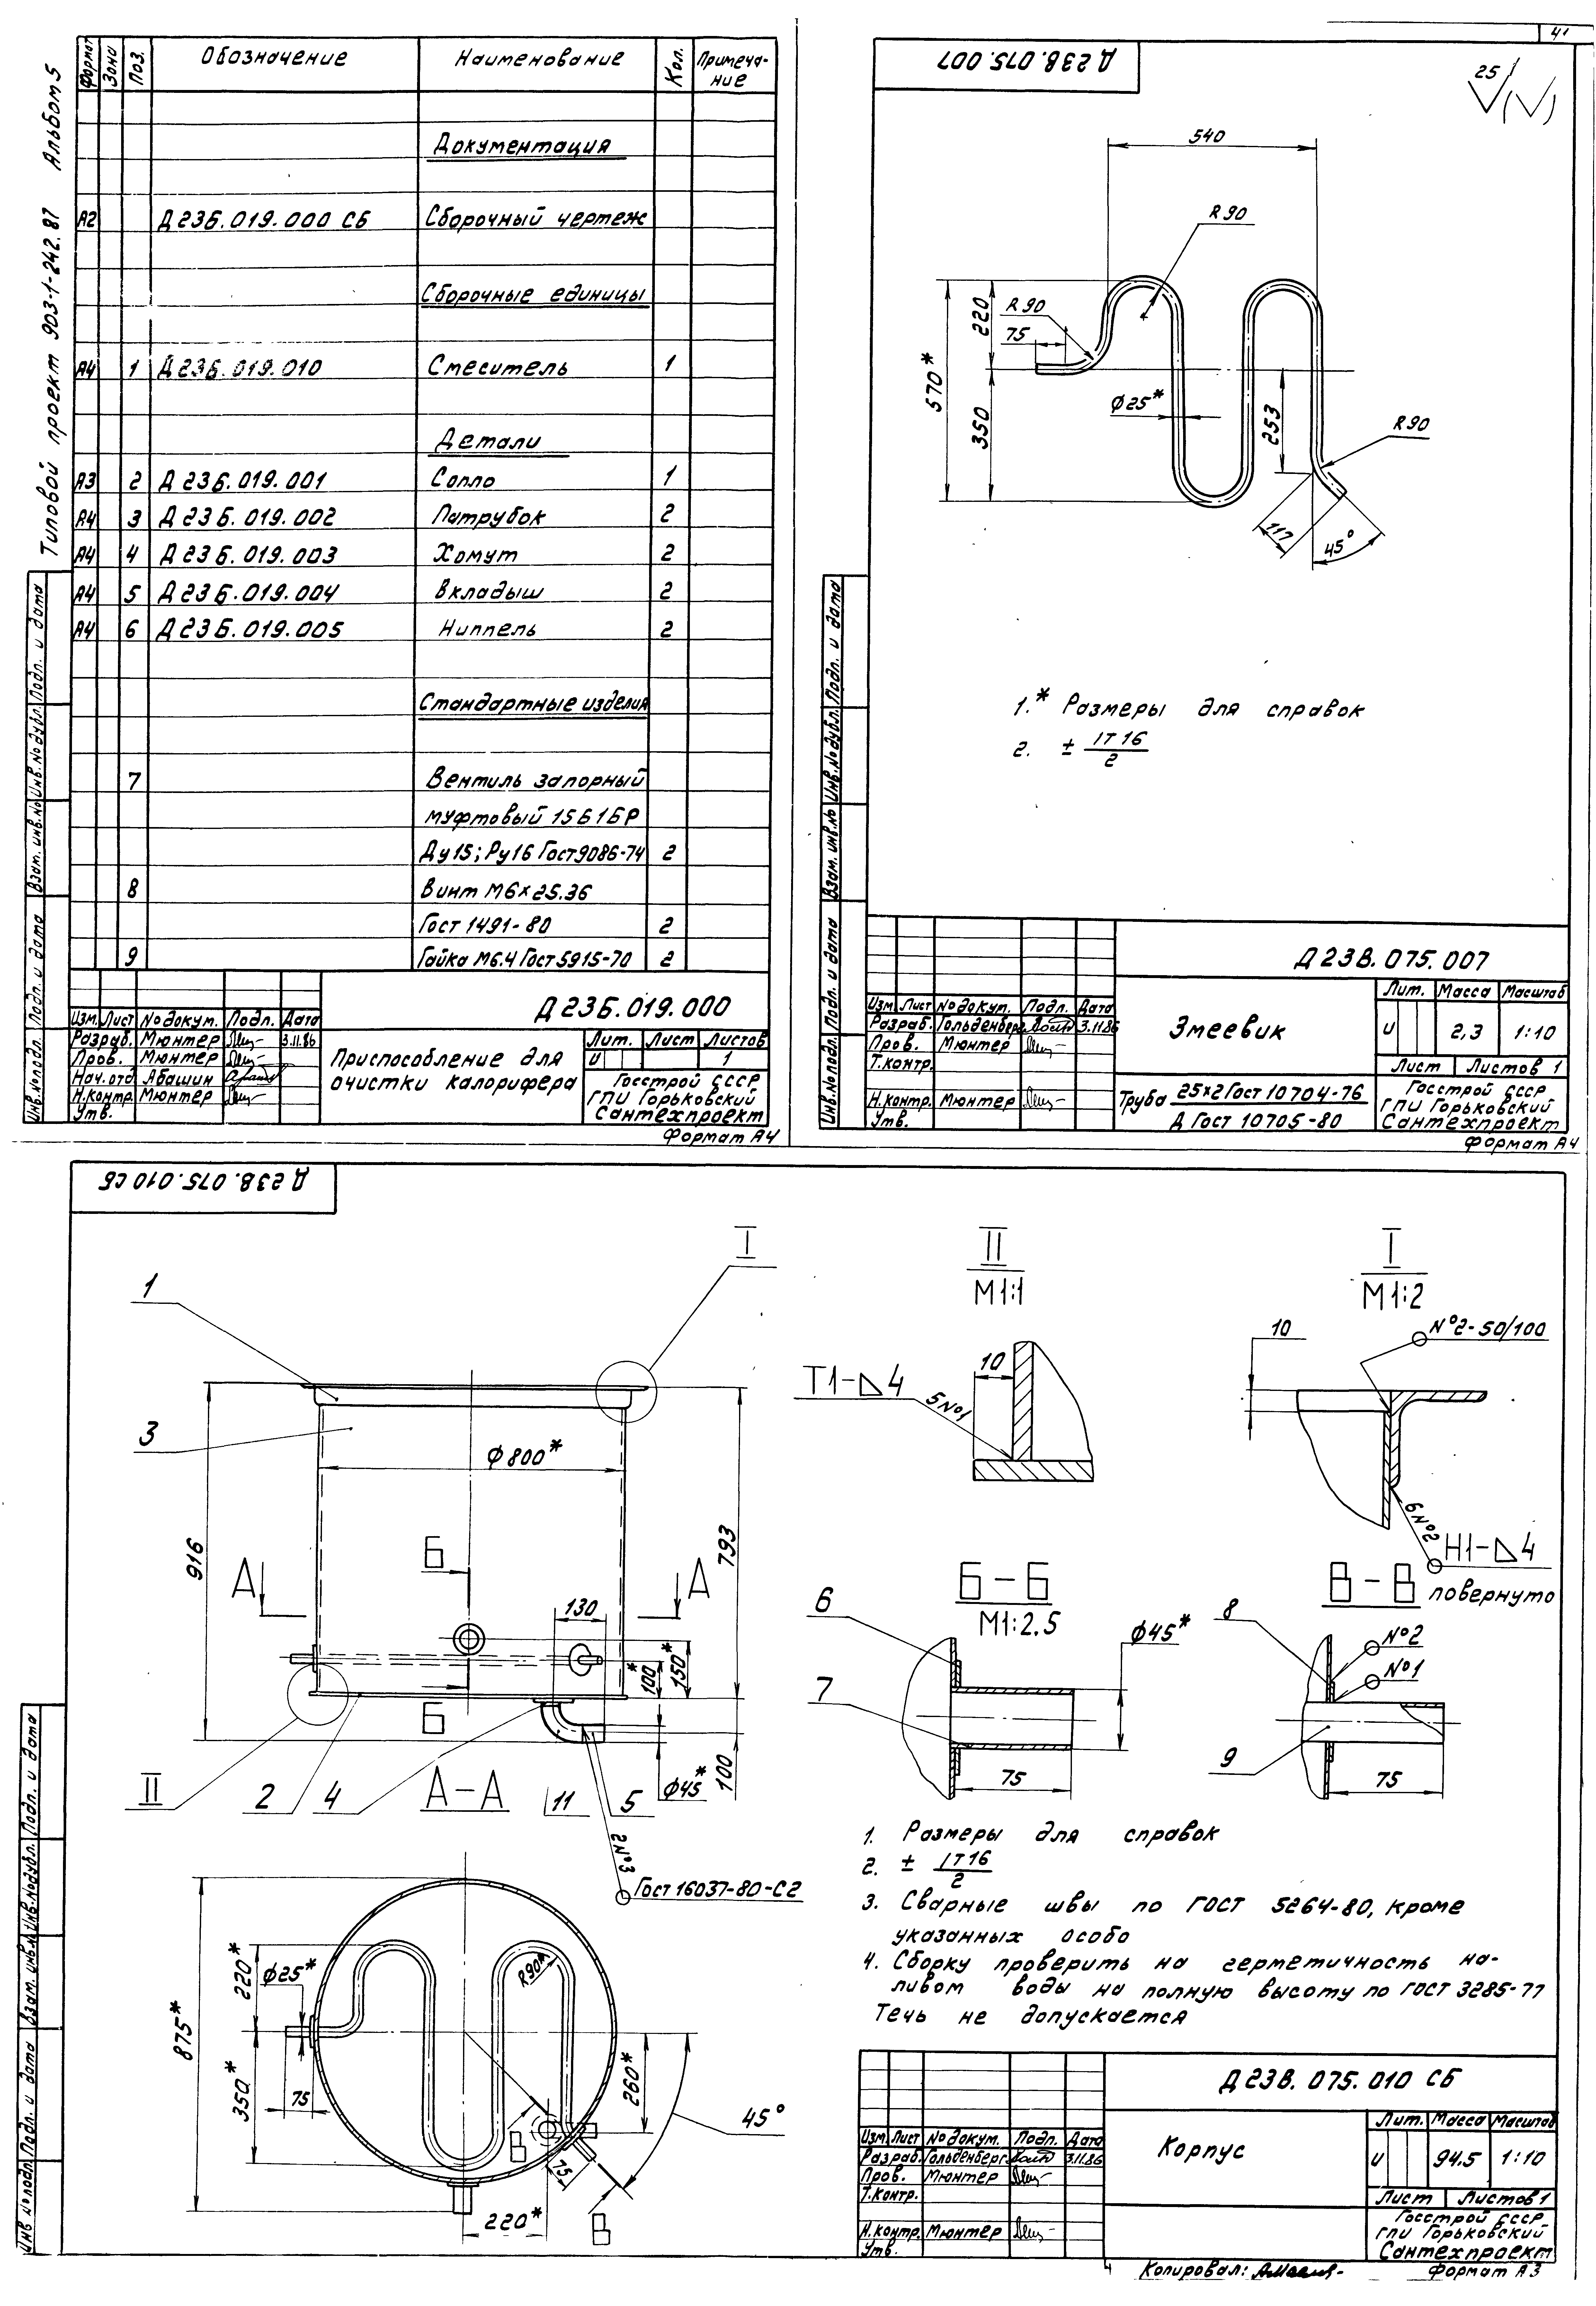 41
Типовой проект 903-1-242.87 Альбом 5
Формат Зона Поз. Обозначение Наименование Кол. Примеча-
ние
Документация
А2 Д23Б.019.000 СБ Сборочный чертеж
Сборочные единицы
А4 1 Д23Б.019.010 Смеситель 1
Детали
А3 2 Д23Б.019.001 Сопло 1
А4 3 Д23Б.019.002 Патрубок 2
А4 4 Д23Б.019.003 Хомут 2
А4 5 Д23Б.019.004 Вкладыш 2
А4 6 Д23Б.019.005 Ниппель 2
Стандартные изделия
7 Вентиль запорный
муфтовый 15Б1БР
Ду15; Ру16 Гост9086-74 2
8 Винт М6×25.36
Гост 1491-80 2
9 Гайка М6.4 Гост 5915-70 2
Д23Б.019.000
Изм. Лист № докум. Подп. Дата
Разраб. Мюнтер 3.11.86
Пров. Мюнтер
Нач.отд Абашин
Н.контр. Мюнтер
Утв.
Приспособление для
очистки калорифера
Лит. Лист Листов
И 1
Госстрой СССР
ГПИ Горьковский
Сантехпроект
Формат А4
Инв.№подл. Подп. и дата Взам. инв.№ Инв.№дубл. Подп. и дата
Д23В.075.007
25
(√)
540
R 90
220
R 90
75
570*
350
Ф25*
253
R 90
117
45°
1.* Размеры для справок
2. ± IT16
2
Д23В.075.007
Изм Лист № докум. Подп. Дата
Разраб. Гольденберг 3.11.86
Пров. Мюнтер
Т.контр.
Н.контр. Мюнтер
Утв.
Змеевик
Лит. Масса Масштаб
И 2,3 1:10
Лист Листов 1
Труба 25х2 Гост 10704-76
Д Гост 10705-80
Госстрой СССР
ГПИ Горьковский
Сантехпроект
Формат А4
Инв.№подл. Подп. и дата Взам. инв.№ Инв.№дубл. Подп. и дата
Д23В.075.010 СБ
I
1
3
Ф800*
916
793
Б
А
А
130
100*
150*
Б
II
2
4
11
5
Ф45*
100
2№3
Гост 16037-80-С2
II
М1:1
10
Т1-⊿4
5№1
I
М1:2
10
№2-50/100
6№2
Н1-⊿4
Б-Б
М1:2.5
6
7
Ф45*
75
В-В повернуто
8
№2
№1
9
75
А-А
875*
220*
350*
Ф25*
75
R90*
260*
45°
75
В
В
220*
1. Размеры для справок
2. ± IT16
2
3. Сварные швы по ГОСТ 5264-80, кроме
указанных особо
4. Сборку проверить на герметичность на-
ливом воды на полную высоту по ГОСТ 3285-77
Течь не допускается
Д23В.075.010 СБ
Изм Лист № докум. Подп. Дата
Разраб. Гольденберг 3.11.86
Пров. Мюнтер
Т.контр.
Н.контр. Мюнтер
Утв.
Корпус
Лит. Масса Масштаб
И 94.5 1:10
Лист Листов 1
Госстрой СССР
ГПИ Горьковский
Сантехпроект
Копировал:
Формат А3
Инв №подл. Подп. и дата Взам. инв.№ Инв.№дубл. Подп. и дата